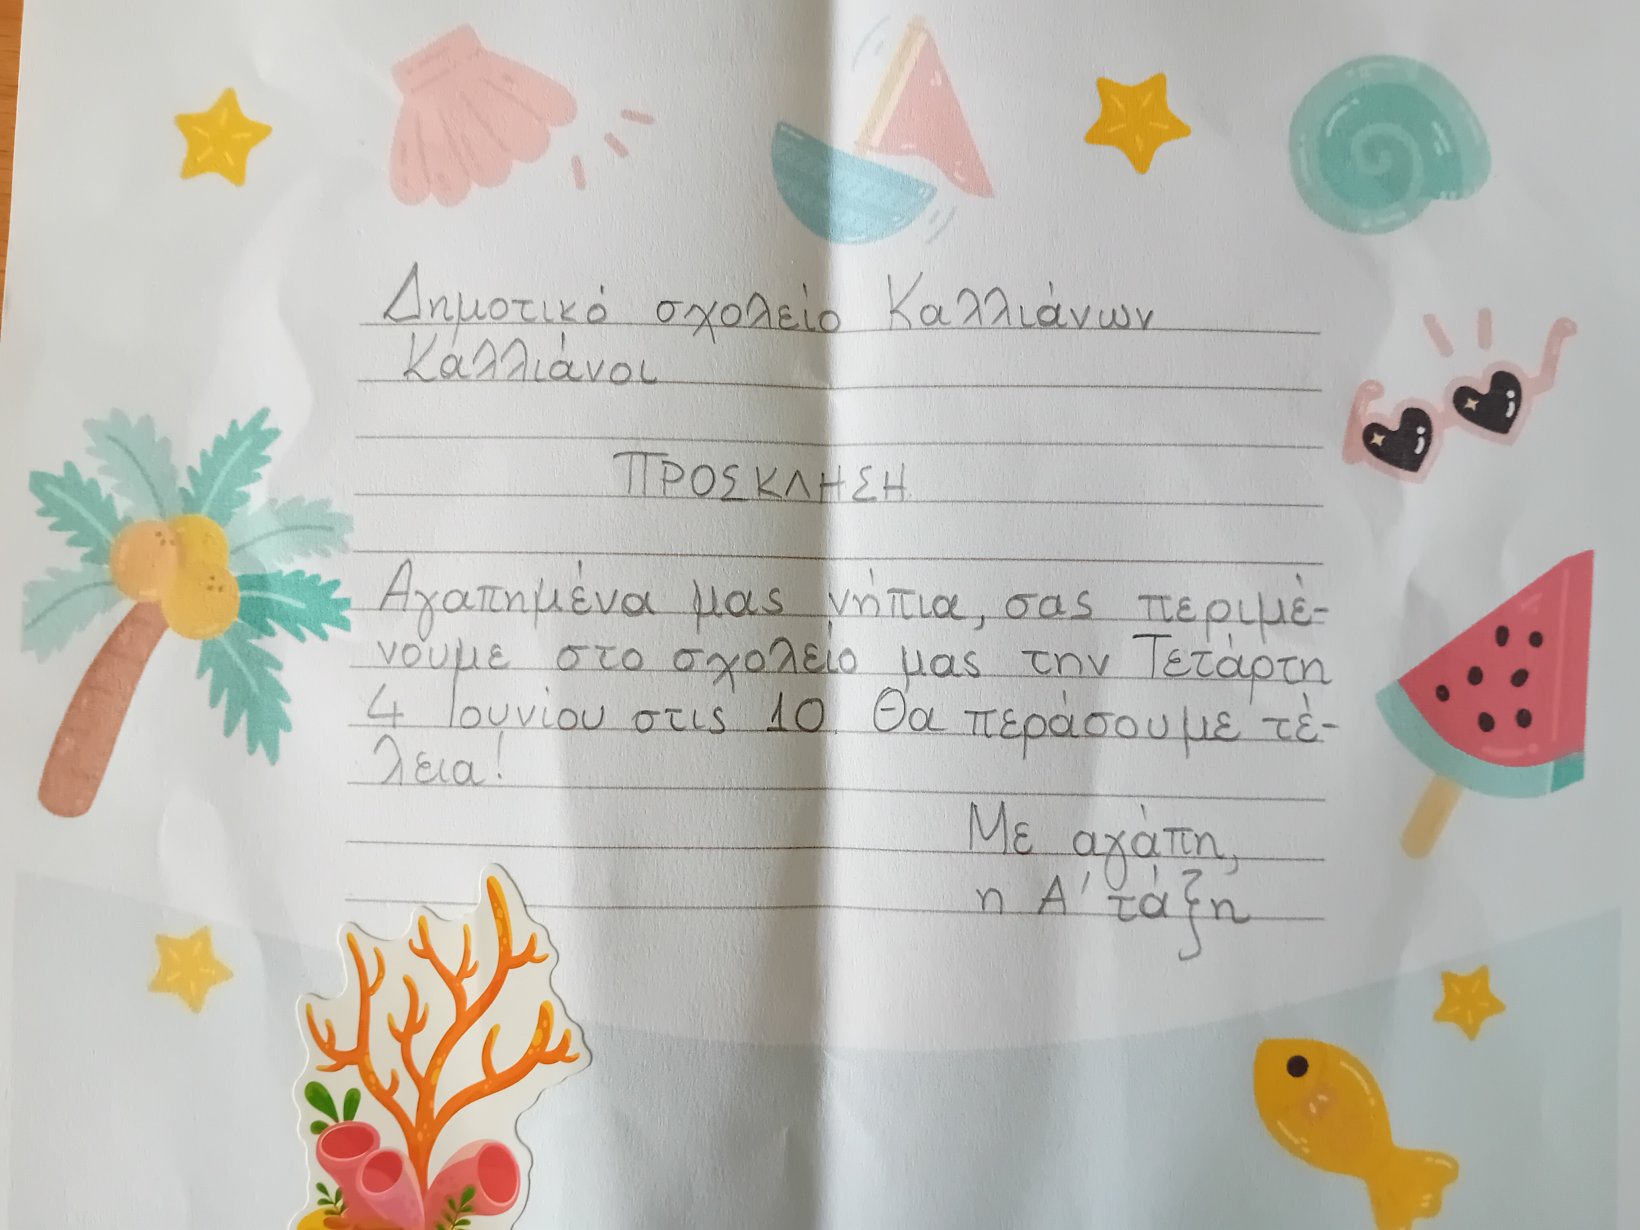 Δημοτικό σχολείο Καλλιάνων
Καλλιάνοι
ΠΡΟΣΚΛΗΣΗ
Αγαπημένα μας νήπια, σας περιμέ-
νουμε στο σχολείο μας την Τετάρτη
4 Ιουνίου στις 10. Θα περάσουμε τέ-
λεια!
Με αγάπη,
η Α' τάξη